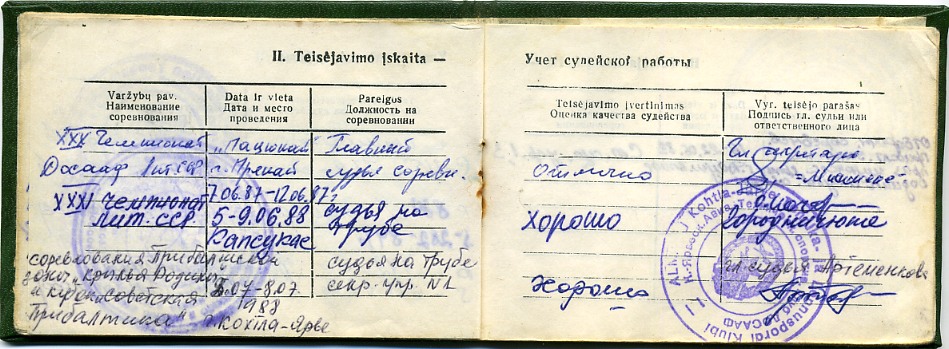 II. Teisėjavimo įskaita —
Varžybų pav.
Наименование
соревнования
Data ir vieta
Дата и место
проведения
Pareigos
Должность на
соревновании
XXX Чемпионат
Досааф Лит.ССР
г. Пренай
7.06.87-12.06.87г.
Главный
судья соревн.
XXXI чемпионат
Лит. ССР
5-9.06.88
Капсукас
судья на
трубе
соревнования Прибалтийская
зона "крылья Родины"
и кубок "советская
Прибалтика"
-8.07.
1988
г. Кохтла-Ярве
судья на трубе
секр. упр. N1
Учет судейской работы
Teisėjavimo įvertinimas
Оценка качества судейства
Vyr. teisėjo parašas
Подпись гл. судьи или
ответственного лица
Отлично
Гл. секретарь
хорошо
Городнянюка
Хорошо
гл. судья Артеменкова
Kohtla-Järve
Lennuspordi Klubi
ДОСААФ